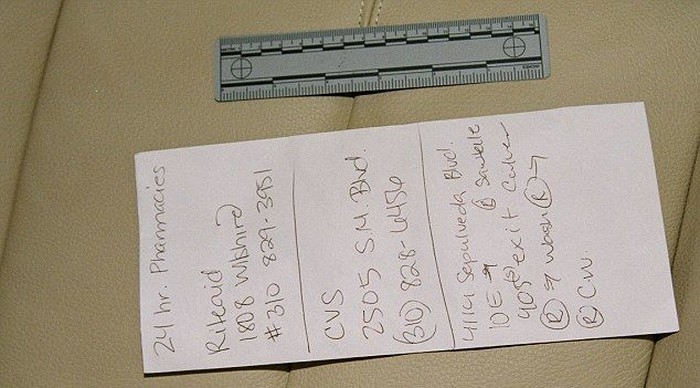 24 hr. Pharmacies
Riteaid
1808 Wilshire
#310 829-3951
CVS
2505 S.M. Blvd.
(310) 828-6456
4114 Sepulveda Blvd.
10E → @ Sawtelle
405 S exit Culver
(R) → Wash (R) →
(R) C.W.